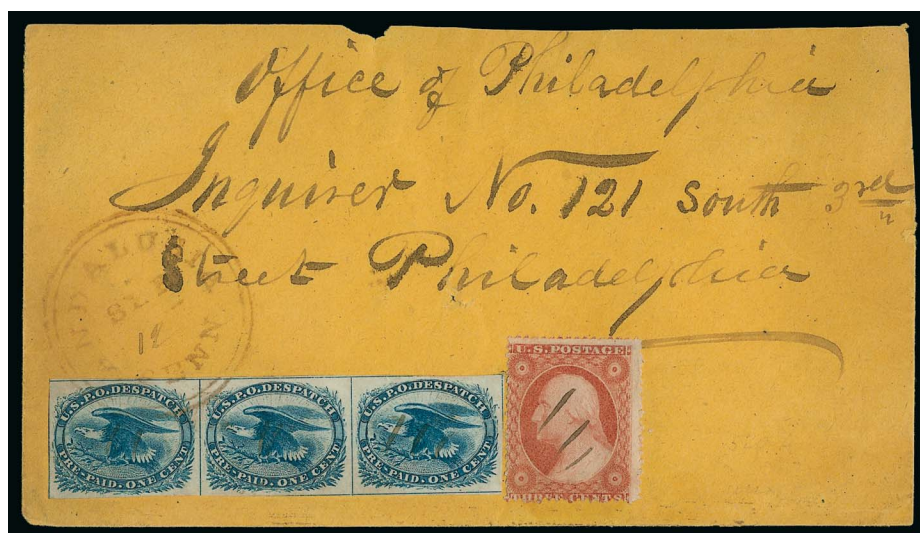 Office of Philadelphia
Inquirer No. 121 South 3rd
Street Philadelphia
SEP
12
PENN
U.S.P.O.DESPATCH
PRE-PAID. ONE CENT.
U.S.P.O.DESPATCH
PRE-PAID. ONE CENT.
U.S.P.O.DESPATCH
PRE-PAID. ONE CENT.
U.S. POSTAGE
THREE CENTS